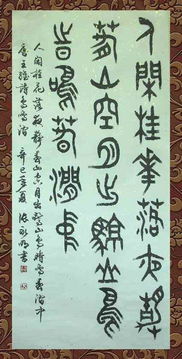 人閒桂華落夜靜
春山空月出驚山鳥
時鳴春澗中
人閑桂花落夜靜春山空月出驚山鳥時鳴春澗中
唐王維詩鳥鳴澗 辛巳年夏 書